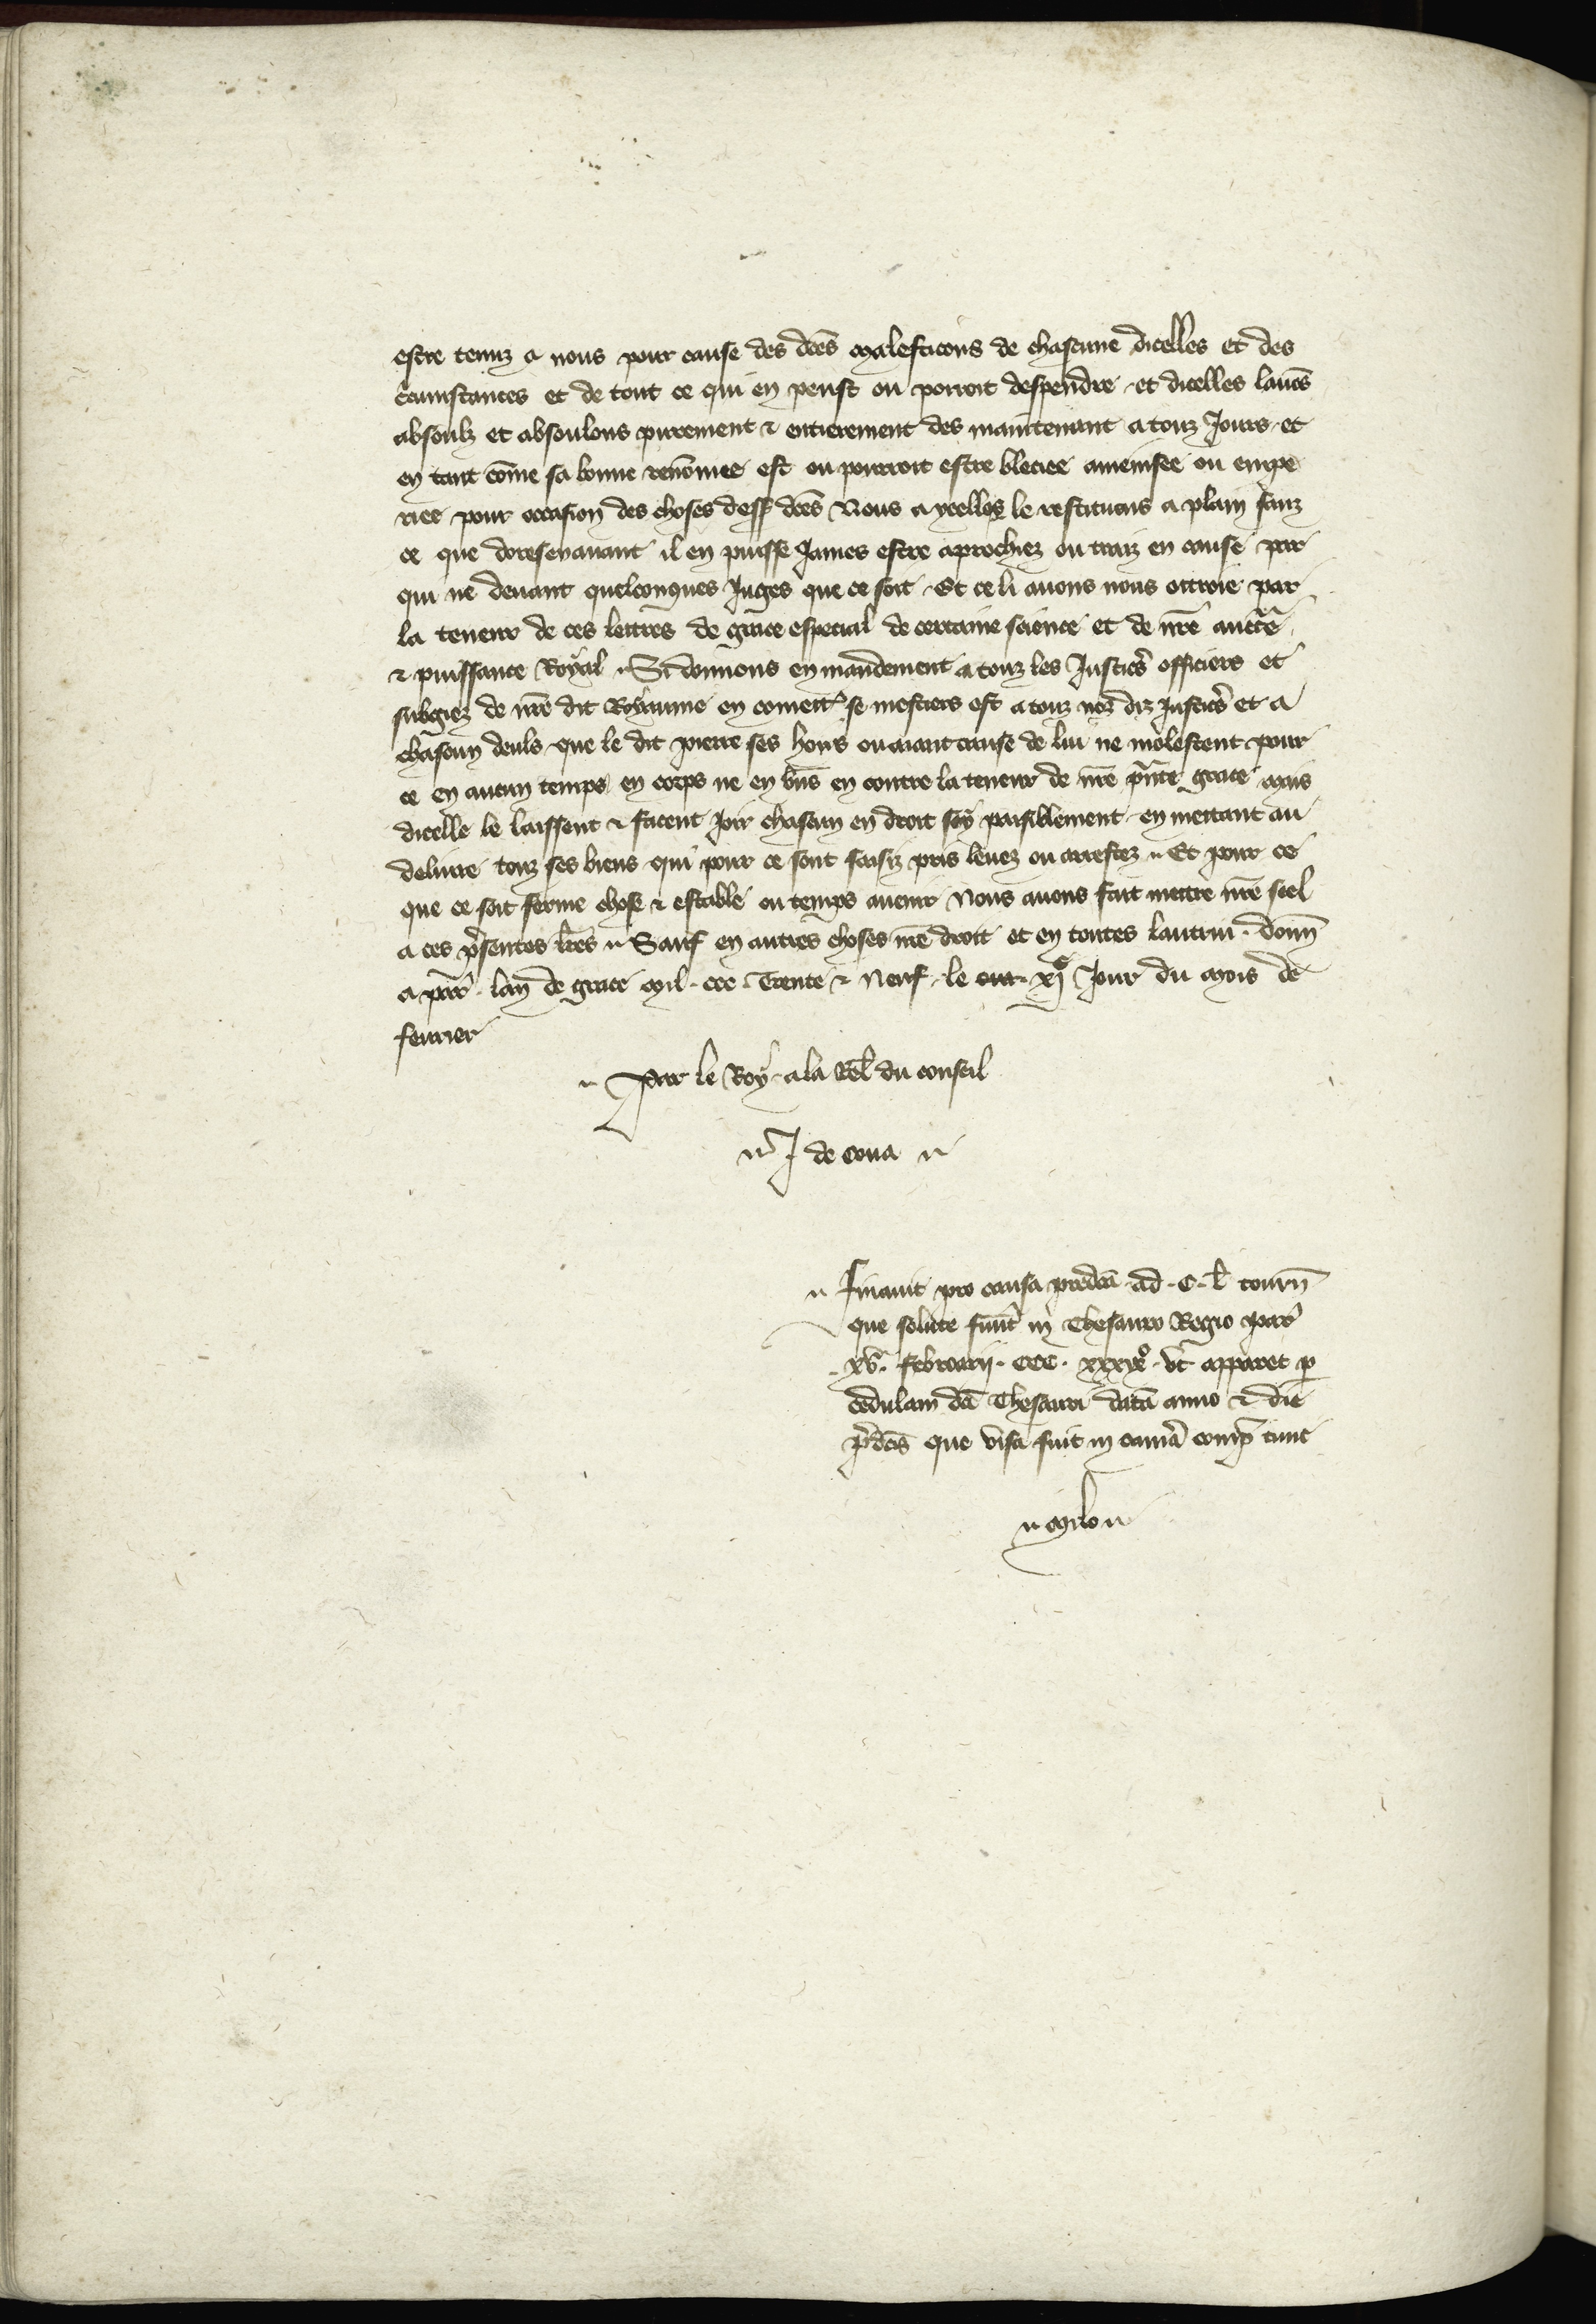 estre tenuz a nous pour cause des dces malefacons de chascune dicelles et des
circumstances et de tout ce qui en peust ou porroit despendre et dicelles lauons
absoulz et absoulons purement & entierement des maintenant a touz Jours et
en tant cōme sa bonne renōmee est ou pourroit estre bleciee amenisee ou empe
riee pour occasion des choses dess dces Nous a ycelles le restituons a plain sanz
ce que doresenauant il en puisse James estre aprochiez ou traiz en cause par
qui ne deuant quelconques Juges que ce soit Et ce li auons nous ottroie par
la teneur de ces lettres de grace especial de certaine science et de nre aucte
& puissance Royal Si donnons en mandement a touz les Justics officiers et
subgiez de nre dit Royaume en comett se mestiers est a touz noz diz Justics et a
chascun deuls que le dit pierre ses hoirs ou aiant cause de lui ne molestent pour
ce en aucun temps en corps ne en bns en contre la teneur de nre pnte grace mais
dicelle le laissent & facent Joir chascun en droit soy paisiblement en mettant au
deliure touz ses biens qui pour ce sont saisiz pris leuez ou arrestez Et pour ce
que ce soit ferme chose & estable ou temps auenir Nous auons fait mettre nre seel
a ces psentes lres Sauf en autres choses nre droit et en toutes lautrui. donn
a par. lan de grace mil. ccc. Trente & Neuf le xj Jour du mois de
feurier
Par le Roy a la rel du conseil
J de cona
Finauit pro causa predca ad. c. l tourn
que solute fuert in Thesauro Regio par
xv. februarii. CCC. xxxixo. vt apparet p
cedulam dci Thesauri datā anno & die
pdcis que visa fuit in camā compr tunc
milon